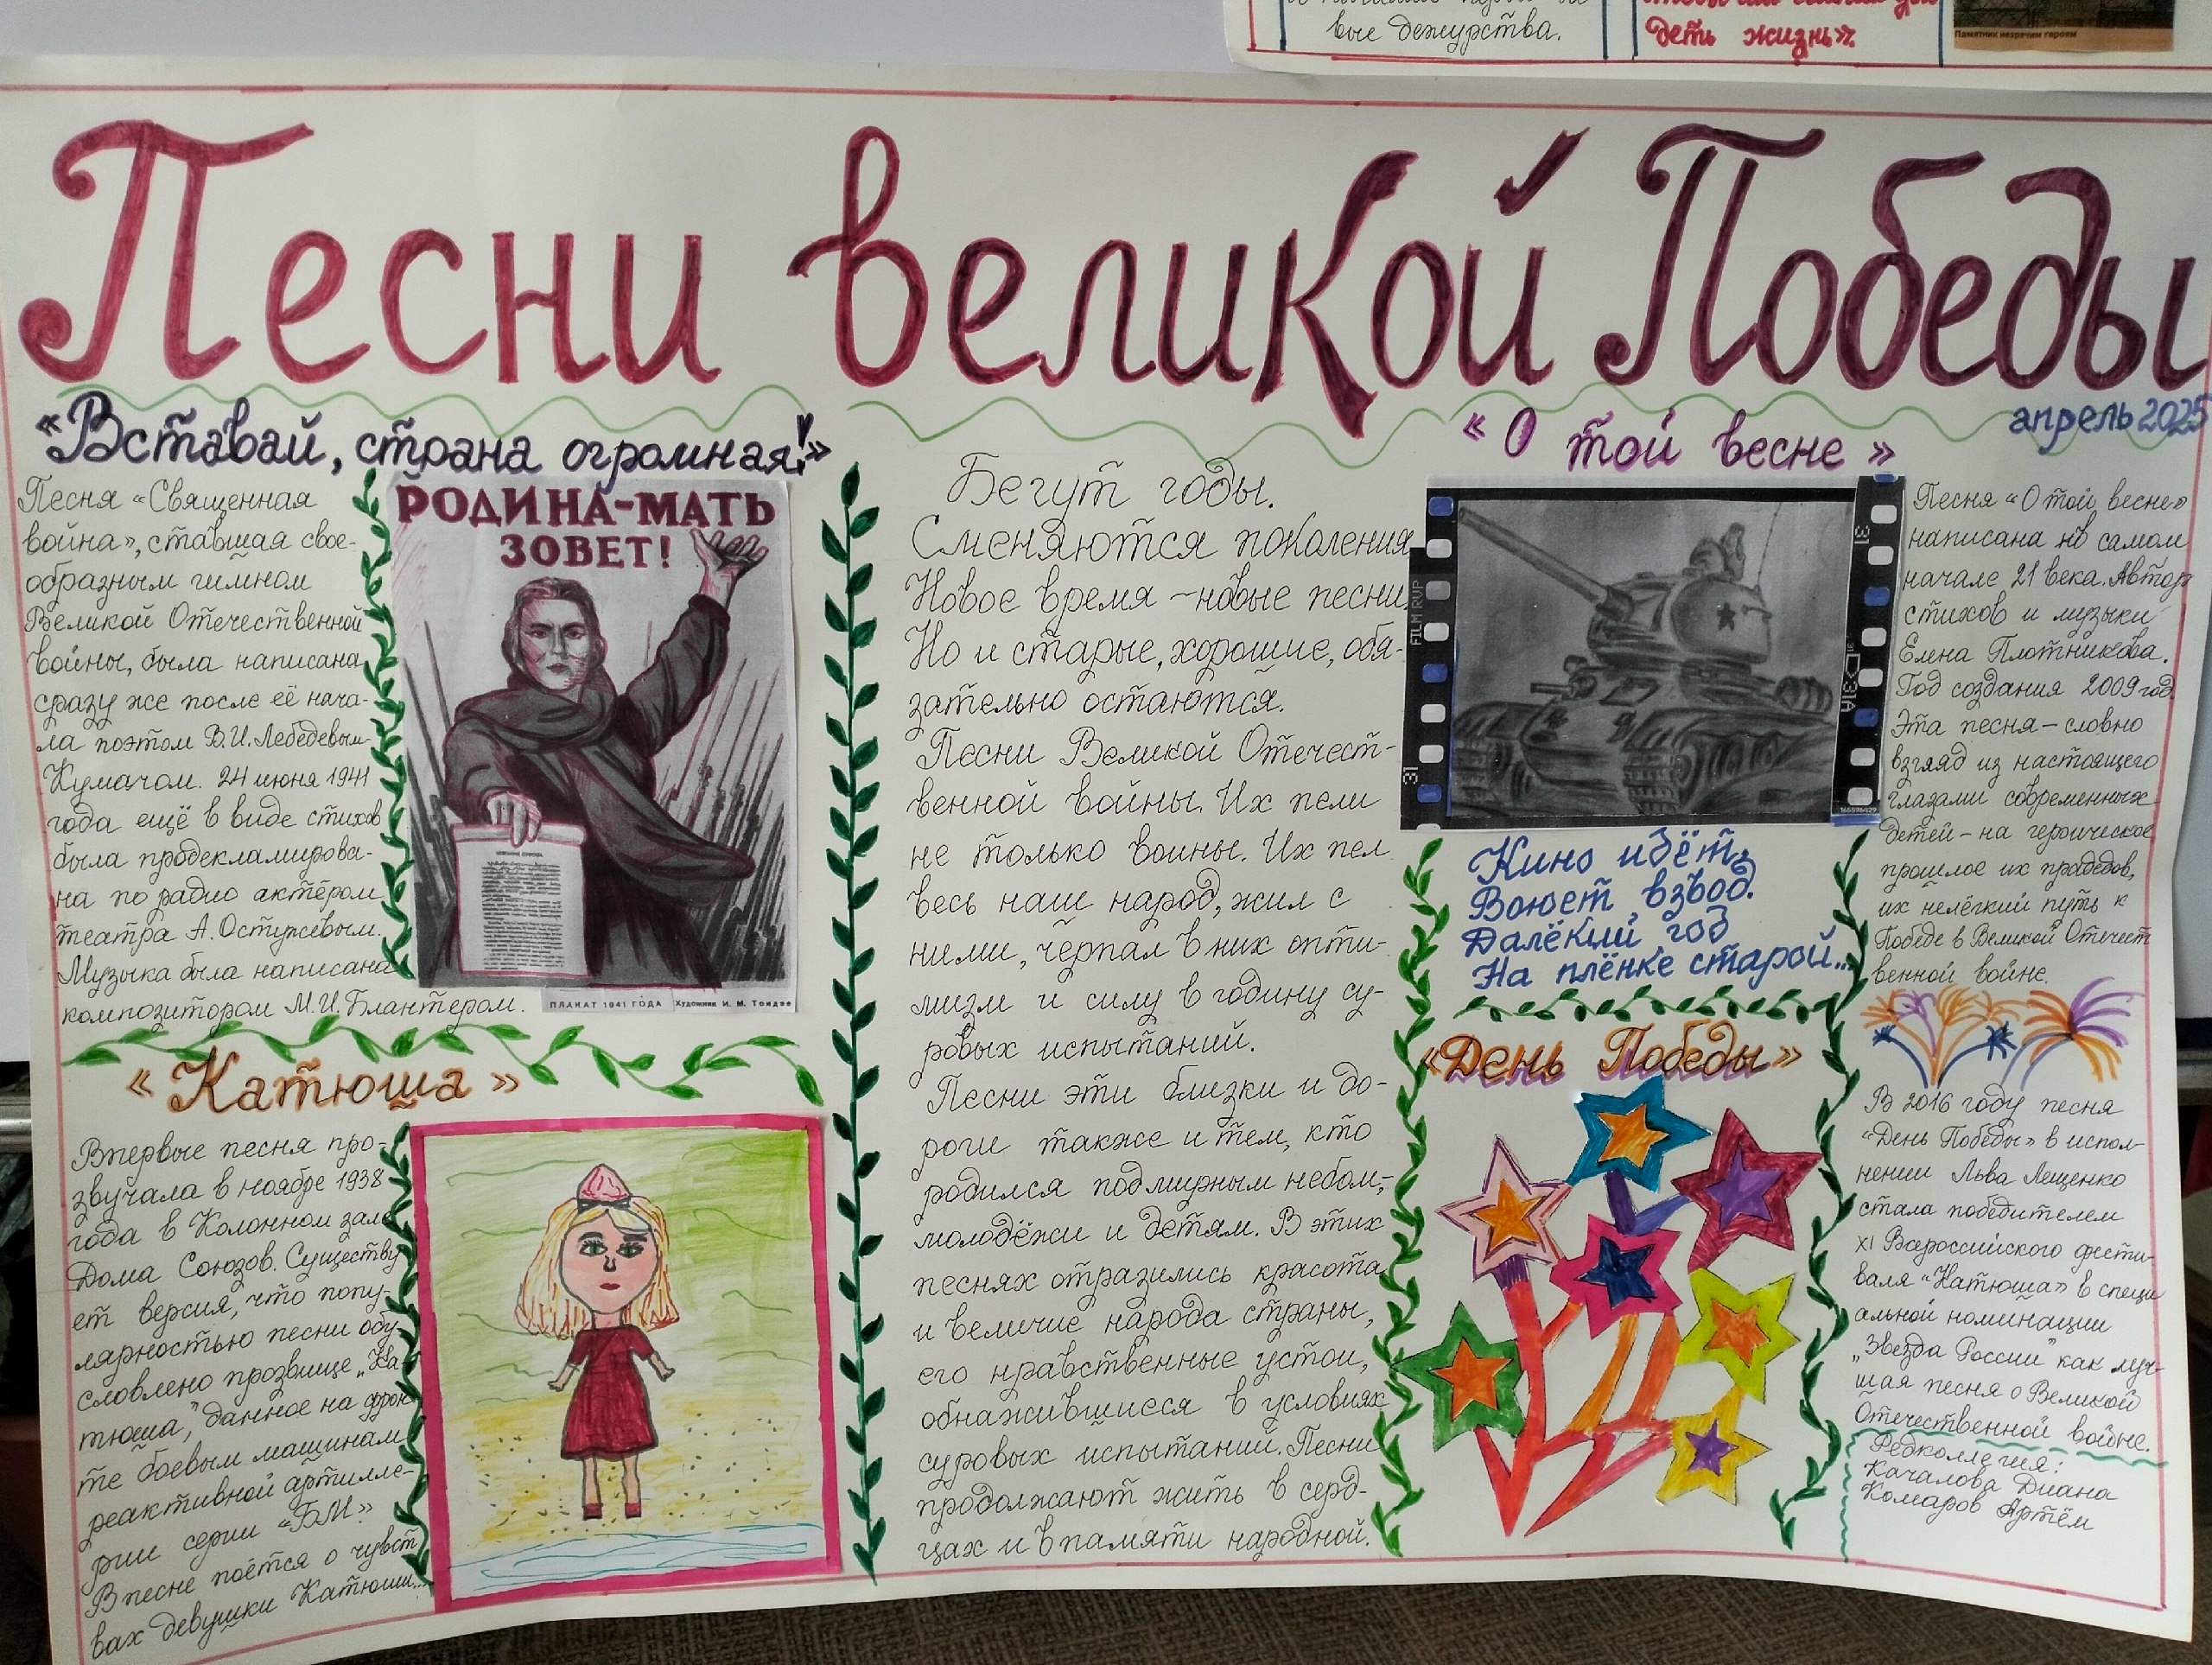 вые дежурства.
деть жизнь».
Памятник незрячим героям
Песни великой Победы
апрель 2025
«Вставай, страна огромная!»
Песня «Священная
война», ставшая свое-
образным гимном
Великой Отечественной
войны, была написана
сразу же после её нача-
ла поэтом В.И.Лебедевым-
Кумачом. 24 июня 1941
года ещё в виде стихов
была продекламирова-
на по радио актёром
театра А.Остужевым.
Музыка была написана
композитором М.И.Блантером.
РОДИНА-МАТЬ
ЗОВЕТ!
ПЛАКАТ 1941 ГОДА Художник И. М. Тоидзе
«Катюша»
Впервые песня про-
звучала в ноябре 1938
года в Колонном зале
Дома Союзов. Существу
ет версия, что попу-
лярностью песни обу
словлено прозвище „Ка
тюша," данное на фрон
те боевым машинам
реактивной артилле-
рии серии «БМ».
В песне поётся о чувст
вах девушки Катюши...
Бегут годы.
Сменяются поколения
Новое время - новые песни.
Но и старые, хорошие, обя-
зательно остаются.
Песни Великой Отечест-
венной войны. Их пели
не только воины. Их пел
весь наш народ, жил с
ними, черпал в них опти-
мизм и силу в годину су-
ровых испытаний.
Песни эти близки и до-
роги также и тем, кто
родился под мирным небом,-
молодёжи и детям. В этих
песнях отразились красота
и величие народа страны,
его нравственные устои,
обнажившиеся в условиях
суровых испытаний. Песни
продолжают жить в серд-
цах и в памяти народной.
«О той весне»
FILM RVP
31
31
31A
Кино идёт,
Воюет взвод.
Далёкий год
На плёнке старой...
Песня «О той весне»
написана в самом
начале 21 века. Автор
стихов и музыки
Елена Плотникова.
Год создания 2009 год.
Эта песня - словно
взгляд из настоящего
глазами современных
детей - на героическое
прошлое их прадедов,
их нелёгкий путь к
Победе в Великой Отечест
венной войне.
«День Победы»
В 2016 году песня
«День Победы» в испол-
нении Льва Лещенко
стала победителем
XI Всероссийского фести-
валя «Катюша» в специ
альной номинации
„Звезда России" как луч-
шая песня о Великой
Отечественной войне.
Редколлегия:
Качалова Диана
Комаров Артём